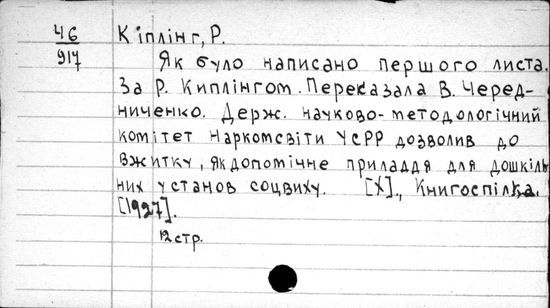 46
917
Кіплінг, Р.
Як було написано першого листа.
За Р. Киплінгом. Переказала В. Черед-
ниченко. Держ. науково-методологічний
комітет Наркомсвіти УСРР дозволив до
вжитку, як допомічне приладдя для дошкіль
них установ соцвиху. [Х]., Книгоспілка,
[1927].
12 стр.